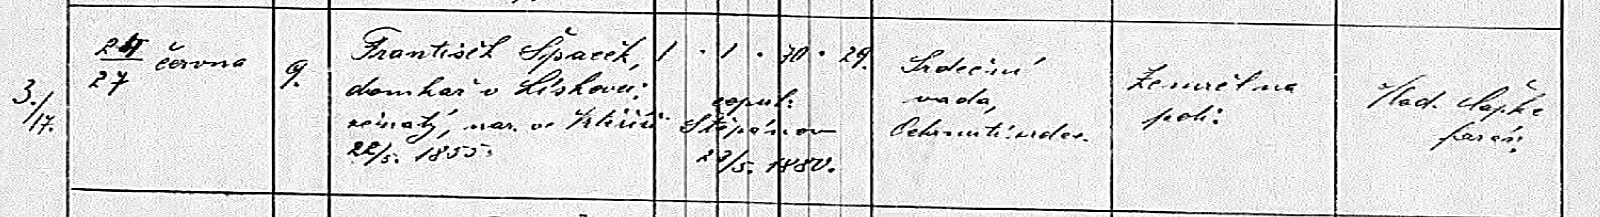 3./17.
24/27 června
9.
František Špaček,
domkář v Lískovci,
ženatý, nar. ve
22/5. 1855.
1 . 1 . 70 . 29.
copul.
Štěpánov
23/5. 1880.
Srdeční
vada,
Ochrnutí srdce.
Zemřel na
poli.
Vlad.
farář.